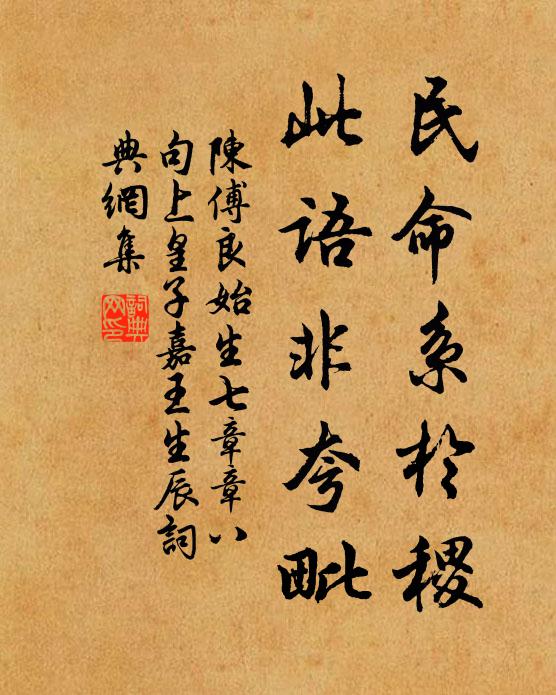 民命系於稷
此語非夸毗
陳傅良始生七章章八
句上皇子嘉王生辰詞
典網集
詞典
网印